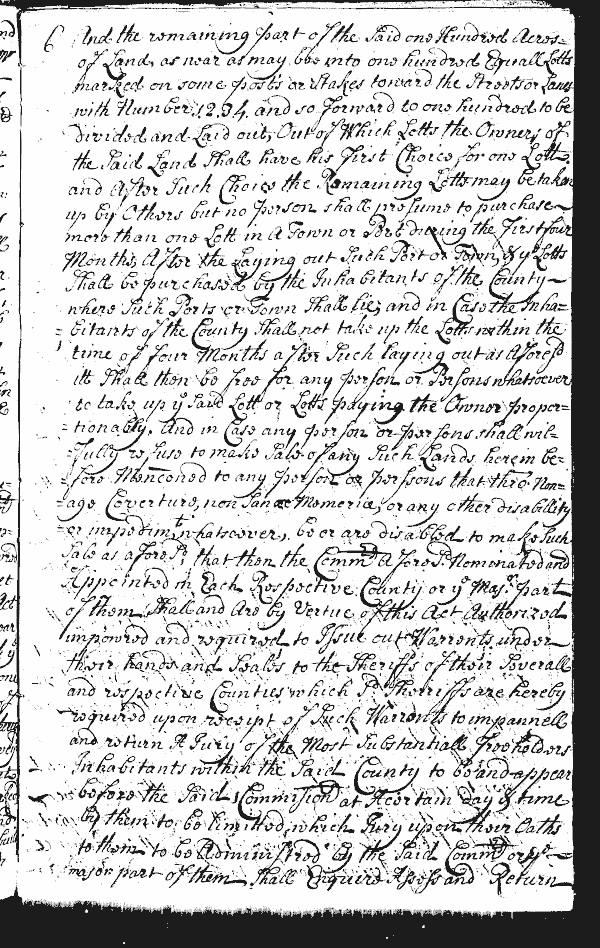 6 And the remaining part of the Said one Hundred Acres=
of Land, as near as may bee into one hundred Equall Lotts
marked on some posts or Stakes toward the Streets or Lanes
with Number, 1, 2, 3, 4, and so forward to one hundred to be
divided and Laid out, Out of Which Lotts the Owner, of
the Said Land Shall have his First Choice for one Lott,
and After Such Choice the Remaining Lotts may be taken
up by Others but no person shall presume to purchase
more than one Lott in A Town or Port during the First four
Months After the Laying out Such Port or Town, & ye Lotts
Shall be purchased by the Inhabitants of the County
where Such Ports or Town Shall lie, and in Case the Inha=
=bitants of the County Shall not take up the Lotts within the
time of four Months after Such laying out as Aforesd
itt Shall then be free for any person or Persons whatsoever
to take up ye Said Lott or Lotts paying the Owner propor=
=tionably, And in Case any person or persons shall wil=
=fully refuse to make Sale of any Such Lands herein be=
=fore Menconed to any person or perssons that thro Non=
=age Coverture, non Sanae Memorie, or any other disability
or impedimt. whatsoever, be or are disabled to make Such
Sale as aforesd., that then the Comm Aforesd. Nominated and
Appointed in Each Respective County or ye Majr. part
of them Shall and Are by Vertue of this Act Authorized
impowred and required to Issue out Warrents under
their hands and Seales to the Sheriffs of their Severall
and respective Counties which Sd. Sherriffs are hereby
required upon receipt of Such Warrents to impannell
and return A Jury of the Most Substantiall Freeholders
Inhabitants within the Said County to be and appear
before the Said Commision at A certain day & time
by them to be limitted, which Jury upon their Oaths
to them to be Administred by the Said Comm or ye
major part of them Shall Enquire Assess and Return